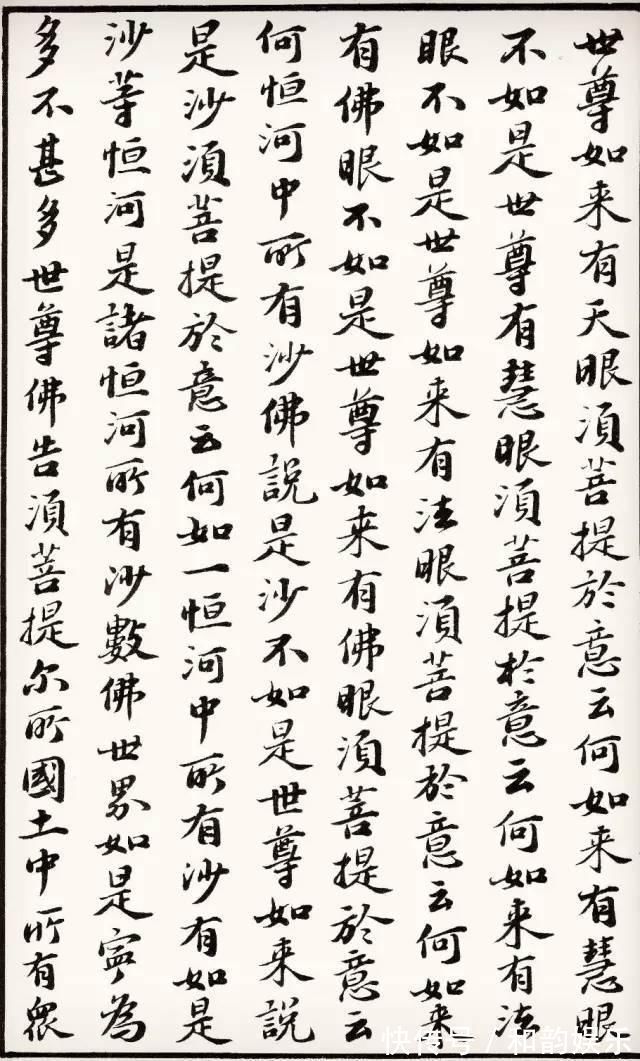 世尊如来有天眼須菩提於意云何如来有慧眼
不如是世尊有慧眼須菩提於意云何如来有法
眼不如是世尊如来有法眼須菩提於意云何如来
有佛眼不如是世尊如来有佛眼須菩提於意云
何恒河中所有沙佛說是沙不如是世尊如来說
是沙須菩提於意云何如一恒河中所有沙有如是
沙等恒河是諸恒河所有沙數佛世界如是寧為
多不甚多世尊佛告須菩提尔所國土中所有眾
快传号/和韵娱乐